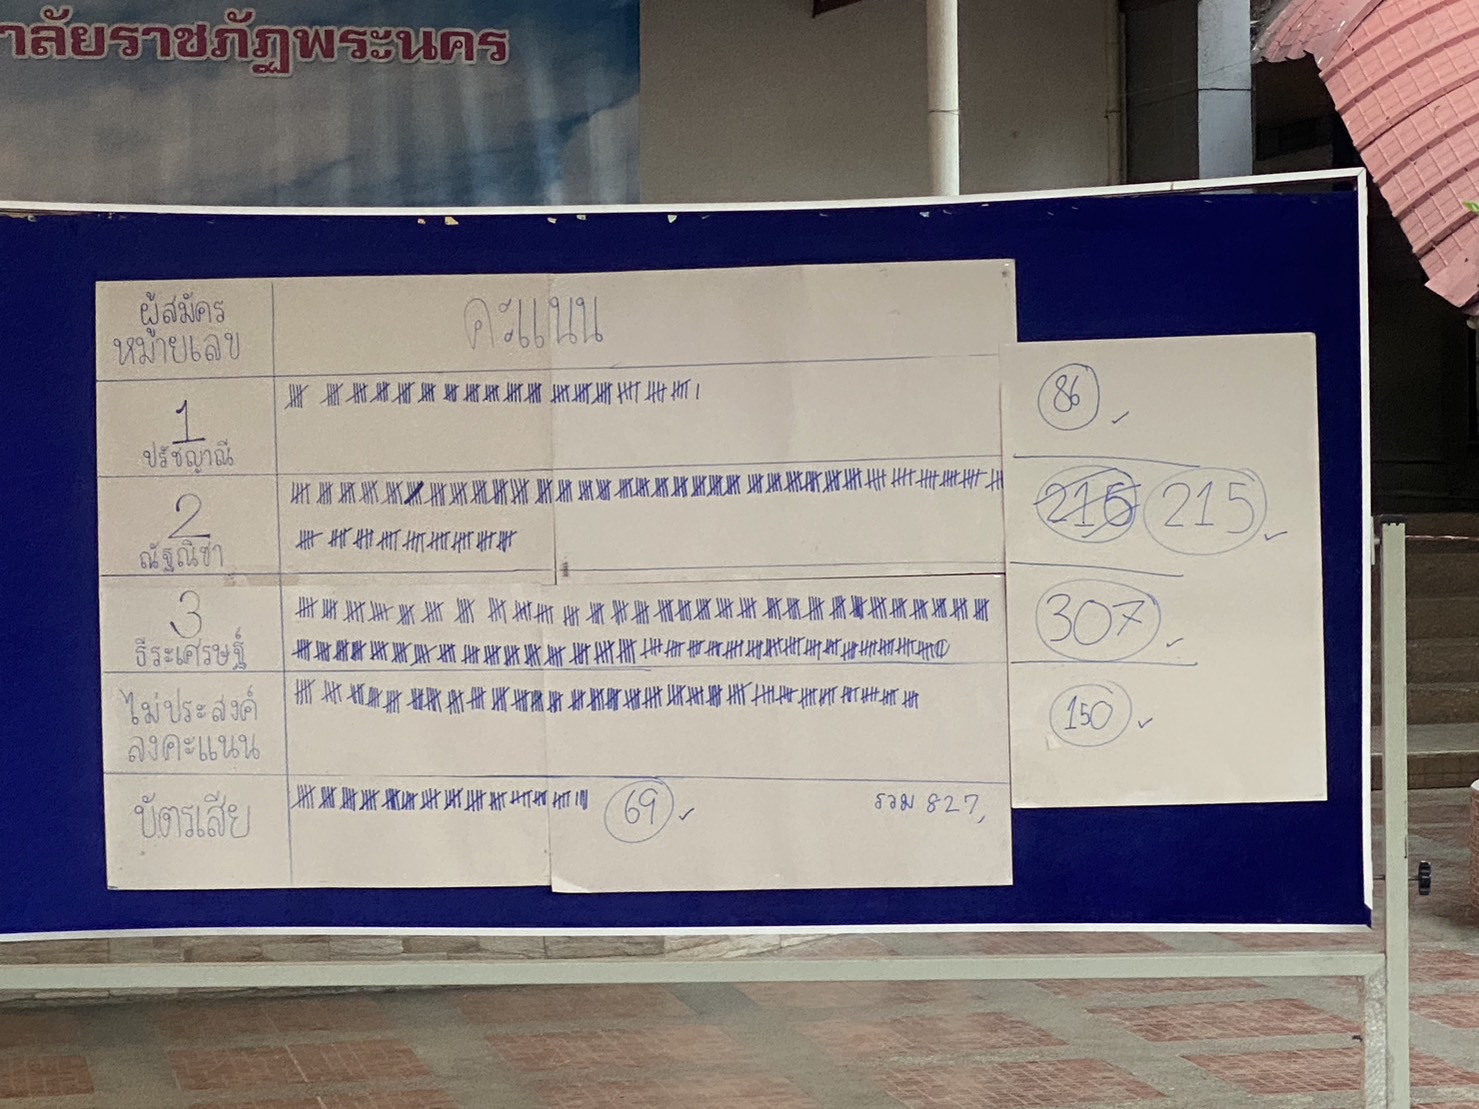 าลัยราชภัฏพระนคร
ผู้สมัคร
หมายเลข
คะแนน
1
ปรัชญาณี
86
2
ณัฐณิชา
215
3
ธีระเศรษฐ์
307
ไม่ประสงค์
ลงคะแนน
150
บัตรเสีย
69
รวม 827